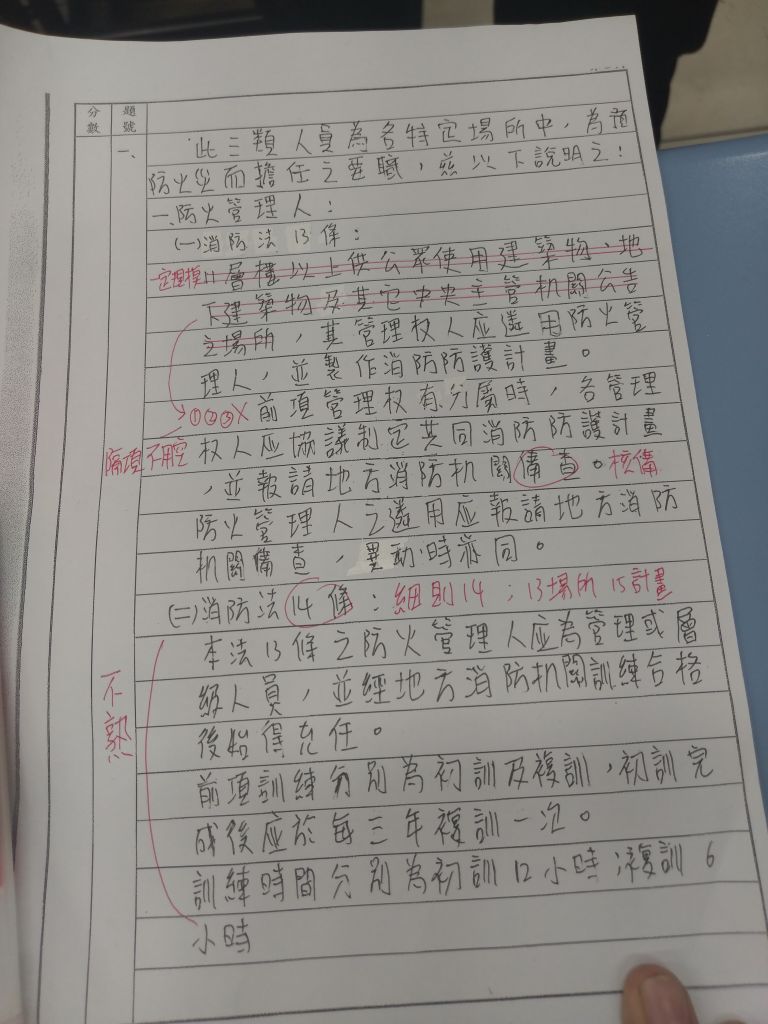 分數
題號
一、
此三類人員為各特定場所中，為預
防火災而擔任之要職，茲以下說明之：
一、防火管理人：
(一)消防法13條：
一定規模11層樓以上供公眾使用建築物、地
下建築物及其它中央主管机關公告
之場所，其管理权人应遴用防火管
理人，並製作消防防護計畫。
①②③X 前項管理权有分屬時，各管理
隔項不用空
权人应協議制定共同消防防護計畫
，並報請地方消防机關備查。核備
防火管理人之遴用应報請地方消防
机關備查，異動時亦同。
(二)消防法14條：細則14；13場所 15計畫
本法13條之防火管理人应為管理或層
級人員，並經地方消防机關訓練合格
不熟
後始得充任。
前項訓練分別為初訓及複訓，初訓完
成後应於每三年複訓一次。
訓練時間分別為初訓12小時；複訓6
小時